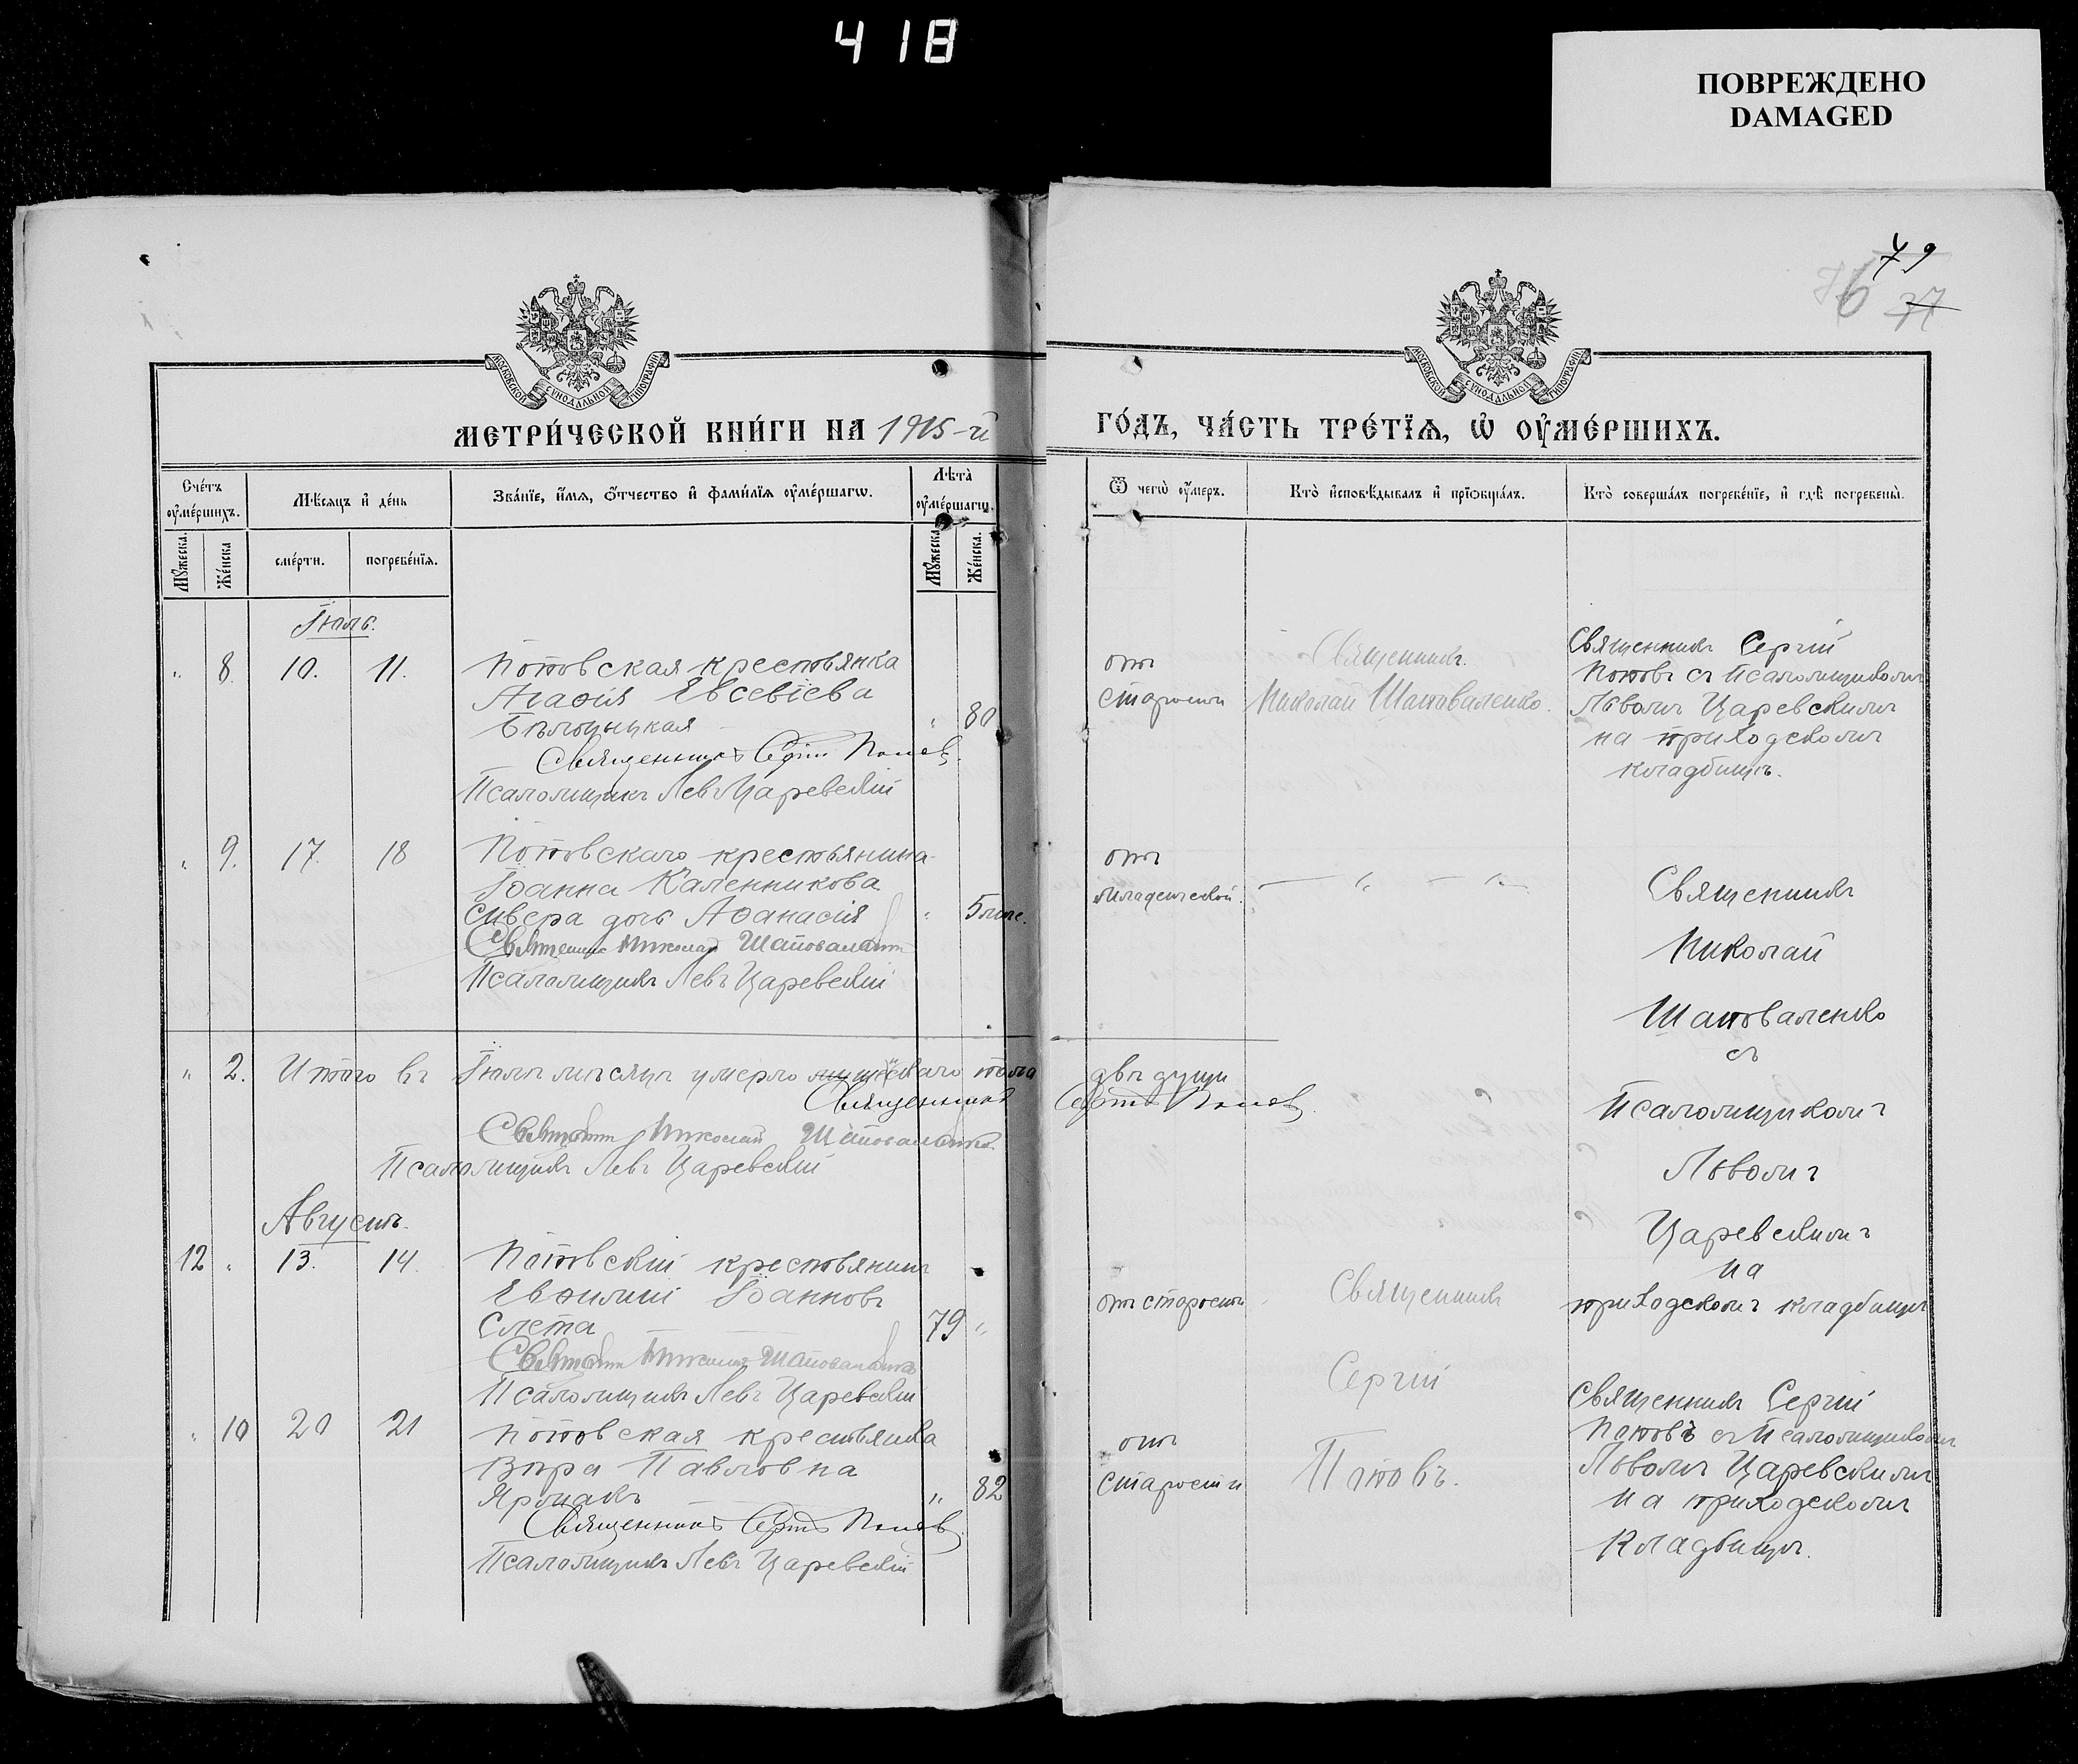 418
ПОВРЕЖДЕНО
DAMAGED
79
76 77
МОСКОВСКОЙ СѴНОДАЛЬНОЙ ТИПОГРАФІИ
МОСКОВСКОЙ СѴНОДАЛЬНОЙ ТИПОГРАФІИ
МЕТРИ́ЧЕСКОЙ КНИ́ГИ НА 1915-й
ГО́ДЪ, ЧА́СТЬ ТРЕ́ТЇѦ, Ѡ ОУ҆МЕ́РШИХЪ.
Сче́тъ оу҆ме́ршихъ.
Мꙋ́жеска.
Же́нска
Мѣ́сяцъ и҆ де́нь
сме́рти.
погребе́нїѧ.
Зва́нїе, и҆́мѧ, ѻ҆́тчество и҆ фами́лїѧ оу҆ме́ршагѡ.
Лѣ́та оу҆ме́ршагѡ.
Мꙋ́жеска
Же́нска.
Ѿ чегѡ̀ оу҆́меръ.
Кто̀ и҆сповѣ́дывалъ и҆ прїѻбща́лъ.
Кто̀ соверша́лъ погребе́нїе, и҆ гдѣ̀ погребены̀.
Іюль.
" 8. 10. 11. Поповская крестьянка
Агаѳія Евсевіева
Бѣлоуцкая " 80
Священникъ Сергій Поповъ.
Псаломщикъ Левъ Царевскій
отъ
старости
Священникъ
Николай Шаповаленко.
Священникъ Сергій
Поповъ съ Псаломщикомъ
Львомъ Царевскимъ
на приходскомъ
кладбищѣ.
" 9. 17. 18 Поповскаго крестьянина
Іоанна Каленникова
дочь Аѳанасія " 5
Священникъ Николай Шаповаленко
Псаломщикъ Левъ Царевскій
отъ
младенческой.
— " — " —
Священникъ
Николай
Шаповаленко
съ
Псаломщикомъ
Львомъ
Царевскимъ
на
приходскомъ кладбищѣ
" 2. Итого въ Іюлѣ мѣсяцѣ умерло пола двѣ души
Священникъ Сергій Поповъ.
Священникъ Николай Шаповаленко
Псаломщикъ Левъ Царевскій
Августъ.
12 " 13. 14. Поповскій крестьянинъ
Евѳимій Іоанновъ
Слета 79 "
Священникъ Николай Шаповаленко
Псаломщикъ Левъ Царевскій
отъ старости
Священникъ
Сергій
Поповъ.
" 10 20 21 Поповская крестьянка
Вѣра Павловна
Ярмакъ " 82
Священникъ Сергій Поповъ.
Псаломщикъ Левъ Царевскій
отъ
старости
Священникъ Сергій
Поповъ съ Псаломщикомъ
Львомъ Царевскимъ
на приходскомъ
кладбищѣ.